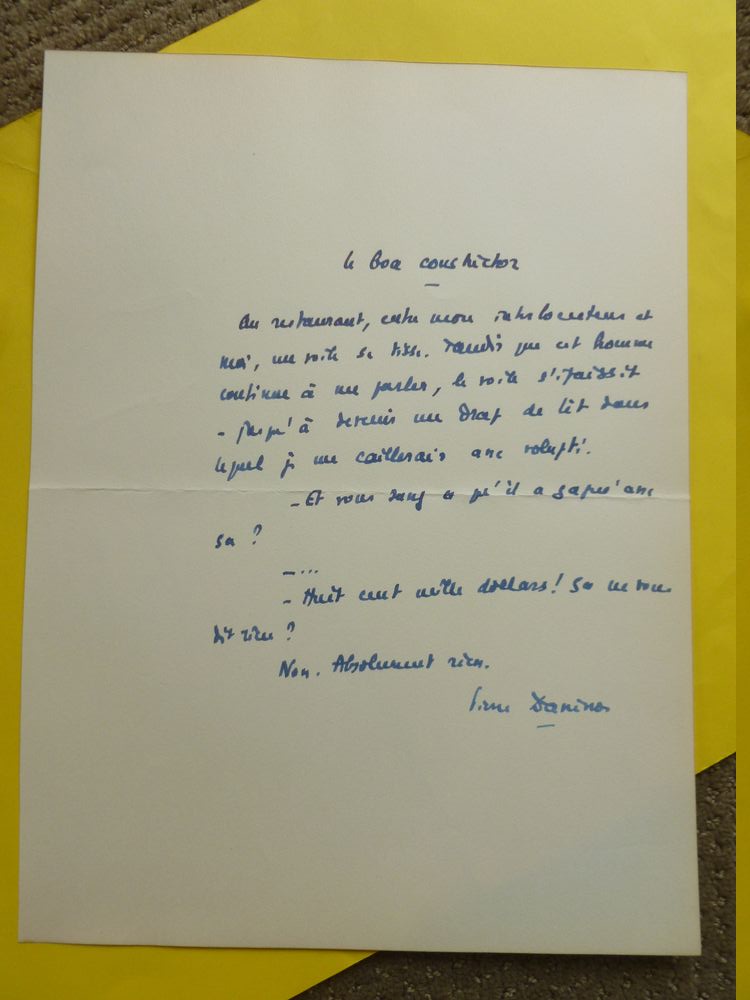 Le boa constrictor
Au restaurant, entre mon interlocuteur et
moi, un voile se tisse. Tandis que cet homme
continue à me parler, le voile s'épaissit
- jusqu'à devenir un drap de lit dans
lequel je me avec volupté.
- Et vous savez ce qu'il a gagné avec
ça ?
- ...
- Huit cent mille dollars ! Ça ne vous
dit rien ?
Non. Absolument rien.
Pierre Daninos